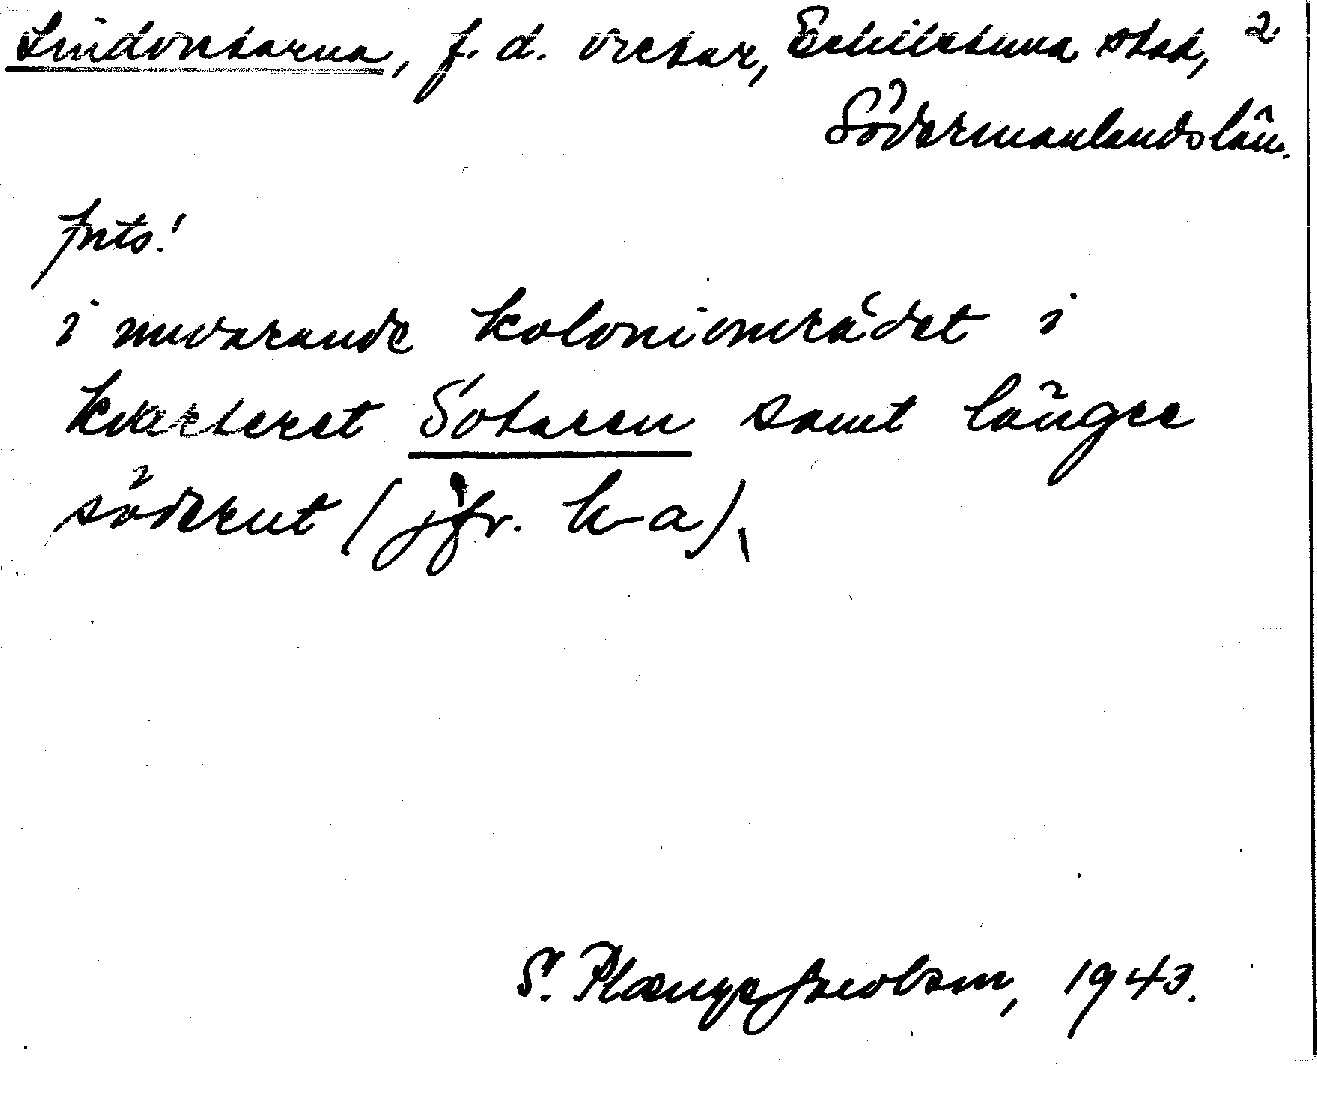 Smedvretarna, f. d. vretar, Eskilstuna stad, 2
Södermanlands län.
forts.!
i nuvarande koloniområdet i
kvarteret Sotaren samt längre
söderut (jfr. k-a).
S. Plænge Jacobson, 1943.